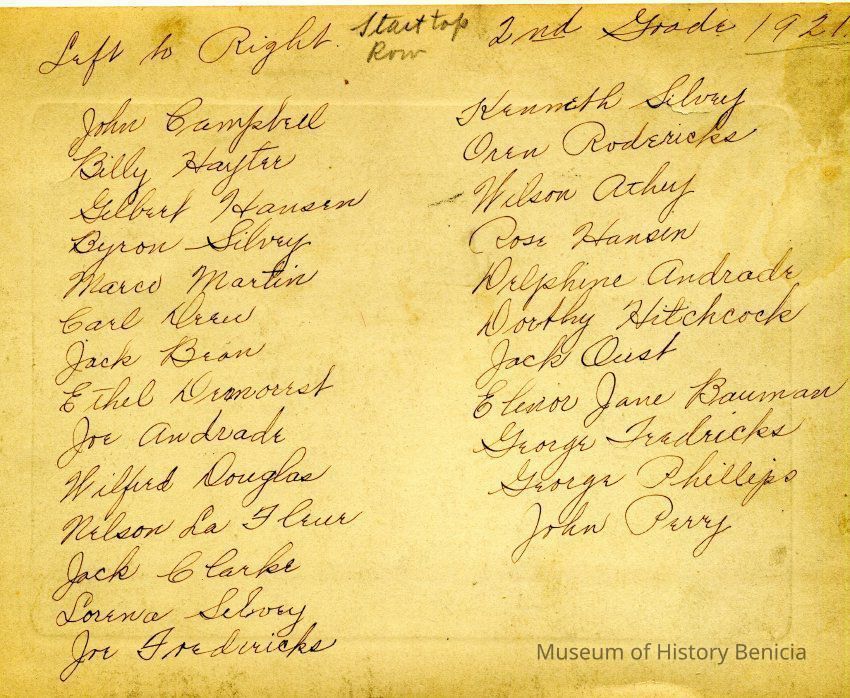 Left to Right. Start top Row 2nd Grade 1921.
John Campbell
Billy Hayter
Gilbert Hansen
Byron Silvey
Marco Martin
Carl Drew
Jack Bean
Ethel Demorest
Joe Andrade
Wilfred Douglas
Nelson La Fleur
Jack Clarke
Lorena Silvey
Joe Fredericks
Kenneth Silvey
Oren Rodericks
Wilson Athey
Rose Hansen
Delphine Andrade
Dorthy Hitchcock
Jack Oust
Elenor Jane Bauman
George Fredricks
George Phillips
John Perry
Museum of History Benicia